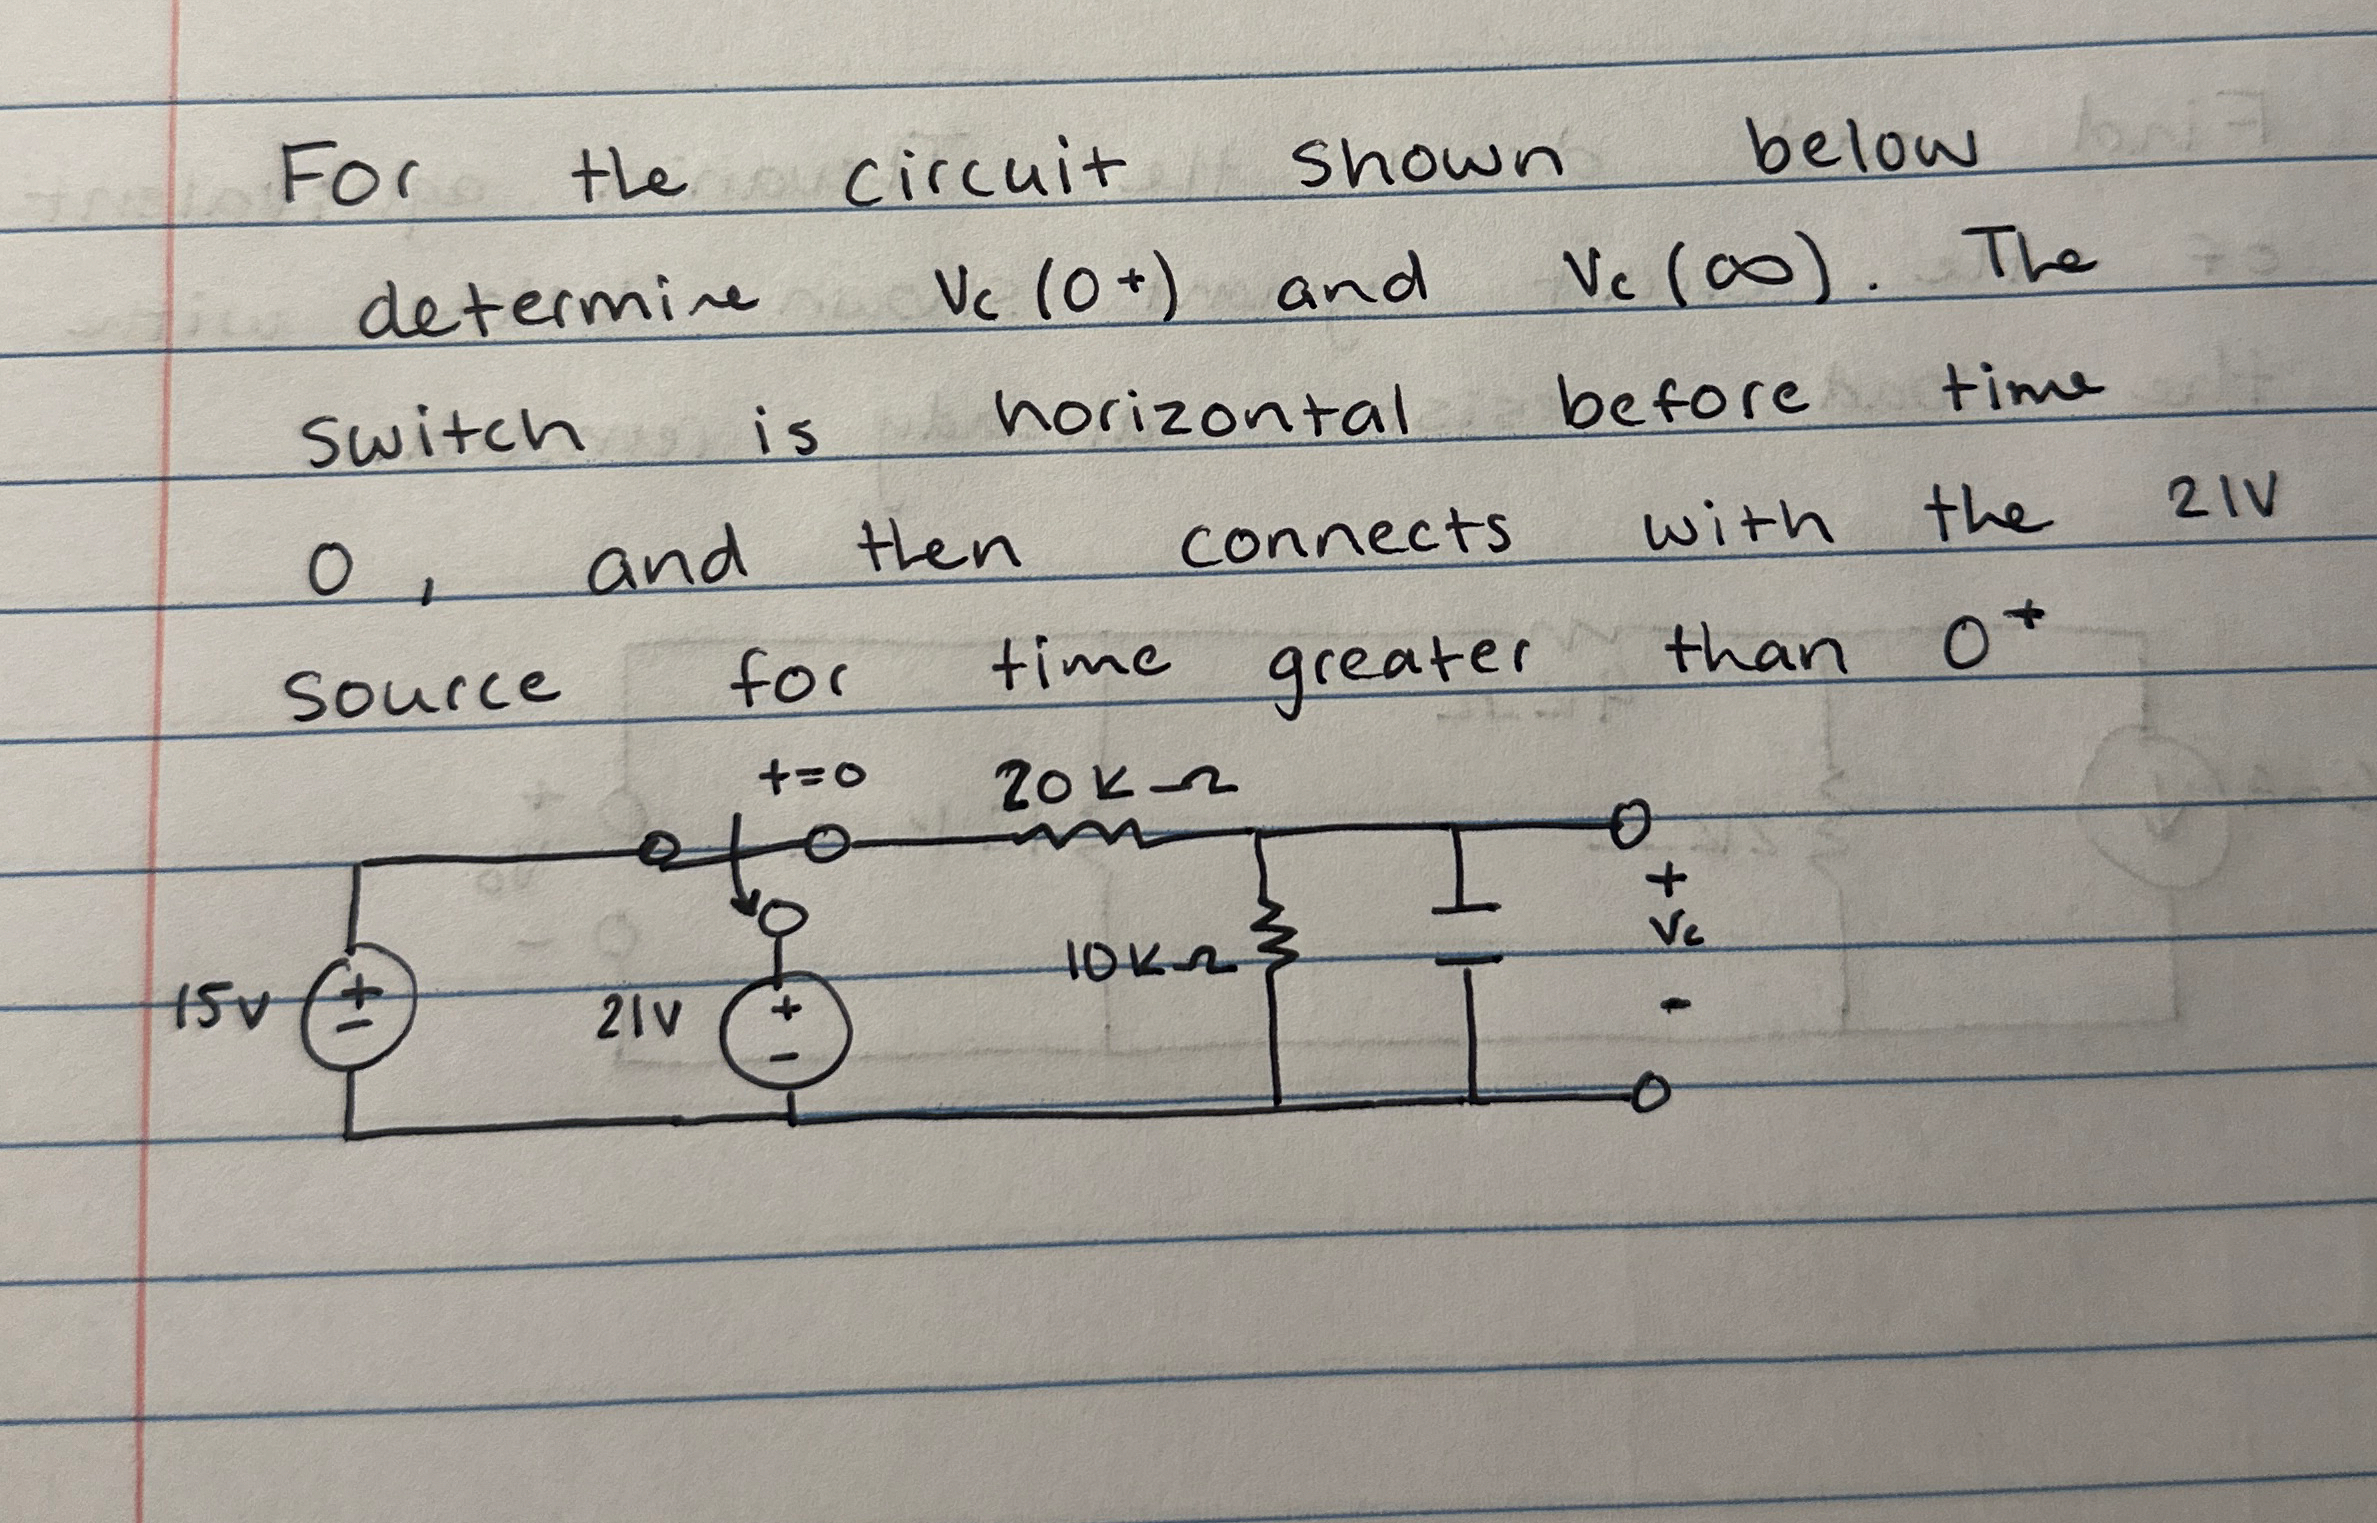 For the circuit shown below
determine Vc (0+) and Vc (∞). The
switch is horizontal before time
0, and then connects with the 21V
source for time greater than 0+
t=0 20KΩ
15V
21V
10KΩ
+
Vc
-
+
-
+
-